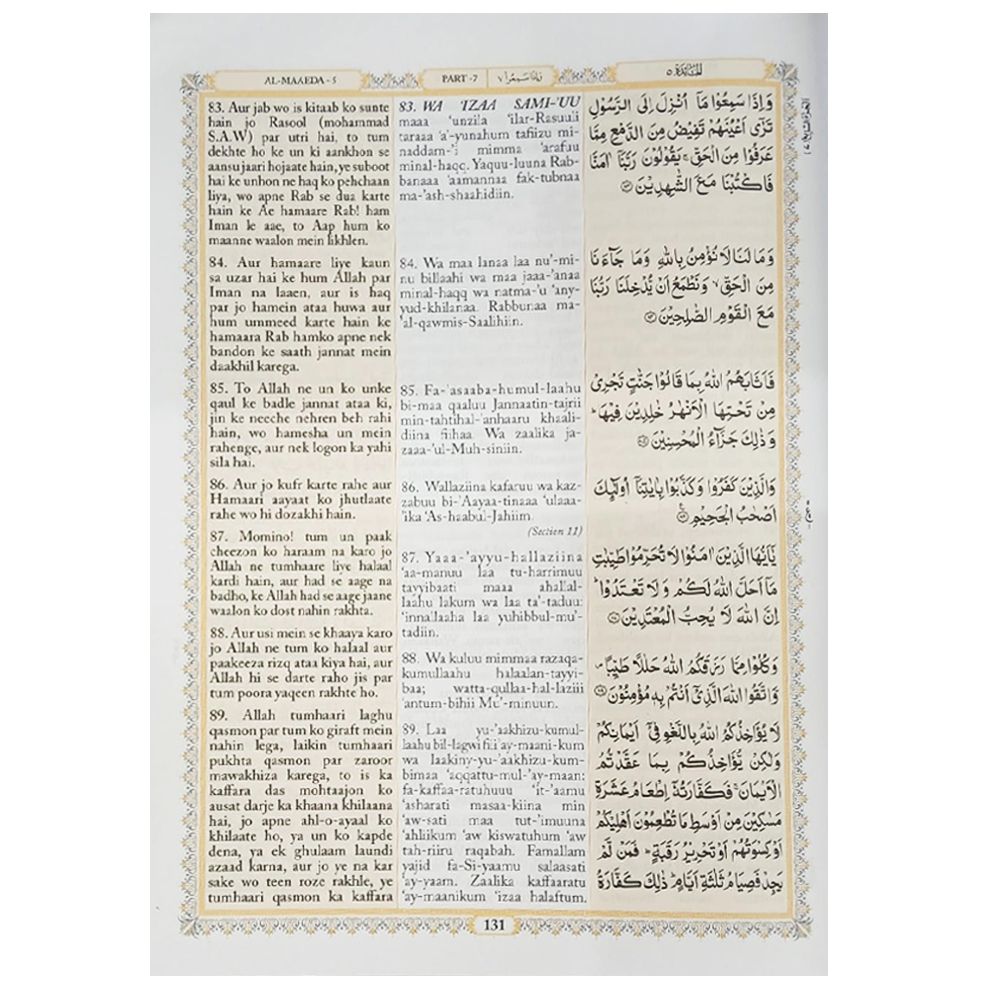 AL-MAAEDA - 5
PART -7
وَاِذَا سَمِعُوْا ٧
اَلْمَآئِدَة ٥
83. Aur jab wo is kitaab ko sunte
hain jo Rasool (mohammad
S.A.W) par utri hai, to tum
dekhte ho ke un ki aankhon se
aansu jaari hojaate hain, ye suboot
hai ke unhon ne haq ko pehchaan
liya, wo apne Rab se dua karte
hain ke Ae hamaare Rab! ham
Iman le aae, to Aap hum ko
maanne waalon mein likhlen.
84. Aur hamaare liye kaun
sa uzar hai ke hum Allah par
Iman na laaen, aur is haq
par jo hamein ataa huwa aur
hum ummeed karte hain ke
hamaara Rab hamko apne nek
bandon ke saath jannat mein
daakhil karega.
85. To Allah ne un ko unke
qaul ke badle jannat ataa ki,
jin ke neeche nehren beh rahi
hain, wo hamesha un mein
rahenge, aur nek logon ka yahi
sila hai.
86. Aur jo kufr karte rahe aur
Hamaari aayaat ko jhutlaate
rahe wo hi dozakhi hain.
87. Momino! tum un paak
cheezon ko haraam na karo jo
Allah ne tumhaare liye halaal
kardi hain, aur had se aage na
badho, ke Allah had se aage jaane
waalon ko dost nahin rakhta.
88. Aur usi mein se khaaya karo
jo Allah ne tum ko halaal aur
paakeeza rizq ataa kiya hai, aur
Allah hi se darte raho jis par
tum poora yaqeen rakhte ho.
89. Allah tumhaari laghu
qasmon par tum ko giraft mein
nahin lega, laikin tumhaari
pukhta qasmon par zaroor
mawakhiza karega, to is ka
kaffara das mohtaajon ko
ausat darje ka khaana khilaana
hai, jo apne ahl-o-ayaal ko
khilaate ho, ya un ko kapde
dena, ya ek ghulaam laundi
azaad karna, aur jo ye na kar
sake wo teen roze rakhle, ye
tumhaari qasmon ka kaffara
83. WA 'IZAA SAMI-'UU
maaa 'unzila 'ilar-Rasuuli
taraaa 'a'-yunahum tafiizu mi-
naddam-'i mimma 'arafuu
minal-haqq. Yaquu-luuna Rab-
banaaa 'aamannaa fak-tubnaa
ma-'ash-shaahidiin.
84. Wa maa lanaa laa nu'-mi-
nu billaahi wa maa jaaa-'anaa
minal-haqq wa natma-'u 'any-
yud-khilanaa. Rabbunaa ma-
'al-qawmis-Saalihiin.
85. Fa-'asaaba-humul-laahu
bi-maa qaaluu Jannaatin-tajrii
min-tahtihal-'anhaaru khaali-
diina fiihaa. Wa zaalika ja-
zaaa-'ul-Muh-siniin.
86. Wallaziina kafaruu wa kaz-
zabuu bi-'Aayaa-tinaaa 'ulaaa-
'ika 'As-haabul-Jahiim.
(Section 11)
87. Yaaa-'ayyu-hallaziina
'aa-manuu laa tu-harrimuu
tayyibaati maaa ahallal-
laahu lakum wa laa ta'-taduu:
'innallaaha laa yuhibbul-mu'-
tadiin.
88. Wa kuluu mimmaa razaqa-
kumullaahu halaalan-tayyi-
baa; watta-qullaa-hal-laziii
'antum-bihii Mu'-minuun.
89. Laa yu-'aakhizu-kumul-
laahu bil-lagwi fiii'ay-maani-kum
wa laakiny-yu-'aakhizu-kum-
bimaa 'aqqattu-mul-'ay-maan:
fa-kaffaa-ratuhuuu 'it-'aamu
'asharati masaa-kiina min
'aw-sati maa tut-'imuuna
'ahliikum 'aw kiswatuhum 'aw
tah-riiru raqabah. Famallam
yajid fa-Si-yaamu salaasati
'ay-yaam. Zaalika kaffaaratu
'ay-maanikum 'izaa halaftum.
وَاِذَا سَمِعُوْا مَاۤ اُنْزِلَ اِلَى الرَّسُوْلِ
تَرٰۤى اَعْيُنَهُمْ تَفِيْضُ مِنَ الدَّمْعِ مِمَّا
عَرَفُوْا مِنَ الْحَقِّ ۚ يَقُوْلُوْنَ رَبَّنَاۤ اٰمَنَّا
فَاكْتُبْنَا مَعَ الشّٰهِدِيْنَ ۝٨٣
وَمَا لَنَا لَا نُؤْمِنُ بِاللّٰهِ وَمَا جَآءَنَا
مِنَ الْحَقِّ ۙ وَنَطْمَعُ اَنْ يُّدْخِلَنَا رَبُّنَا
مَعَ الْقَوْمِ الصّٰلِحِيْنَ ۝٨٤
فَاَثَابَهُمُ اللّٰهُ بِمَا قَالُوْا جَنّٰتٍ تَجْرِيْ
مِنْ تَحْتِهَا الْاَنْهٰرُ خٰلِدِيْنَ فِيْهَا ؕ
وَذٰلِكَ جَزَآءُ الْمُحْسِنِيْنَ ۝٨٥
وَالَّذِيْنَ كَفَرُوْا وَكَذَّبُوْا بِاٰيٰتِنَاۤ اُولٰٓئِكَ
اَصْحٰبُ الْجَحِيْمِ ۝٨٦
يٰۤاَيُّهَا الَّذِيْنَ اٰمَنُوْا لَا تُحَرِّمُوْا طَيِّبٰتِ
مَاۤ اَحَلَّ اللّٰهُ لَكُمْ وَلَا تَعْتَدُوْا ؕ
اِنَّ اللّٰهَ لَا يُحِبُّ الْمُعْتَدِيْنَ ۝٨٧
وَكُلُوْا مِمَّا رَزَقَكُمُ اللّٰهُ حَلٰلًا طَيِّبًا ۪
وَّاتَّقُوا اللّٰهَ الَّذِيْۤ اَنْتُمْ بِهٖ مُؤْمِنُوْنَ ۝٨٨
لَا يُؤَاخِذُكُمُ اللّٰهُ بِاللَّغْوِ فِيْۤ اَيْمَانِكُمْ
وَلٰكِنْ يُّؤَاخِذُكُمْ بِمَا عَقَّدْتُّمُ
الْاَيْمَانَ ۚ فَكَفَّارَتُهٗۤ اِطْعَامُ عَشَرَةِ
مَسٰكِيْنَ مِنْ اَوْسَطِ مَا تُطْعِمُوْنَ اَهْلِيْكُمْ
اَوْ كِسْوَتُهُمْ اَوْ تَحْرِيْرُ رَقَبَةٍ ؕ فَمَنْ لَّمْ
يَجِدْ فَصِيَامُ ثَلٰثَةِ اَيَّامٍ ؕ ذٰلِكَ كَفَّارَةُ
131